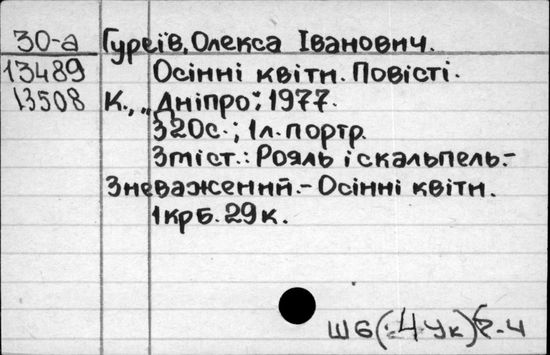 30-а Гуреїв, Олекса Іванович.
13489 Осінні квіти. Повісті.
13508 К., „Дніпро", 1977.
320с.; 1л. портр.
Зміст.: Рояль і скальпель.-
Зневажений.- Осінні квіти.
1крб. 29к.
Ш6(4Ук)